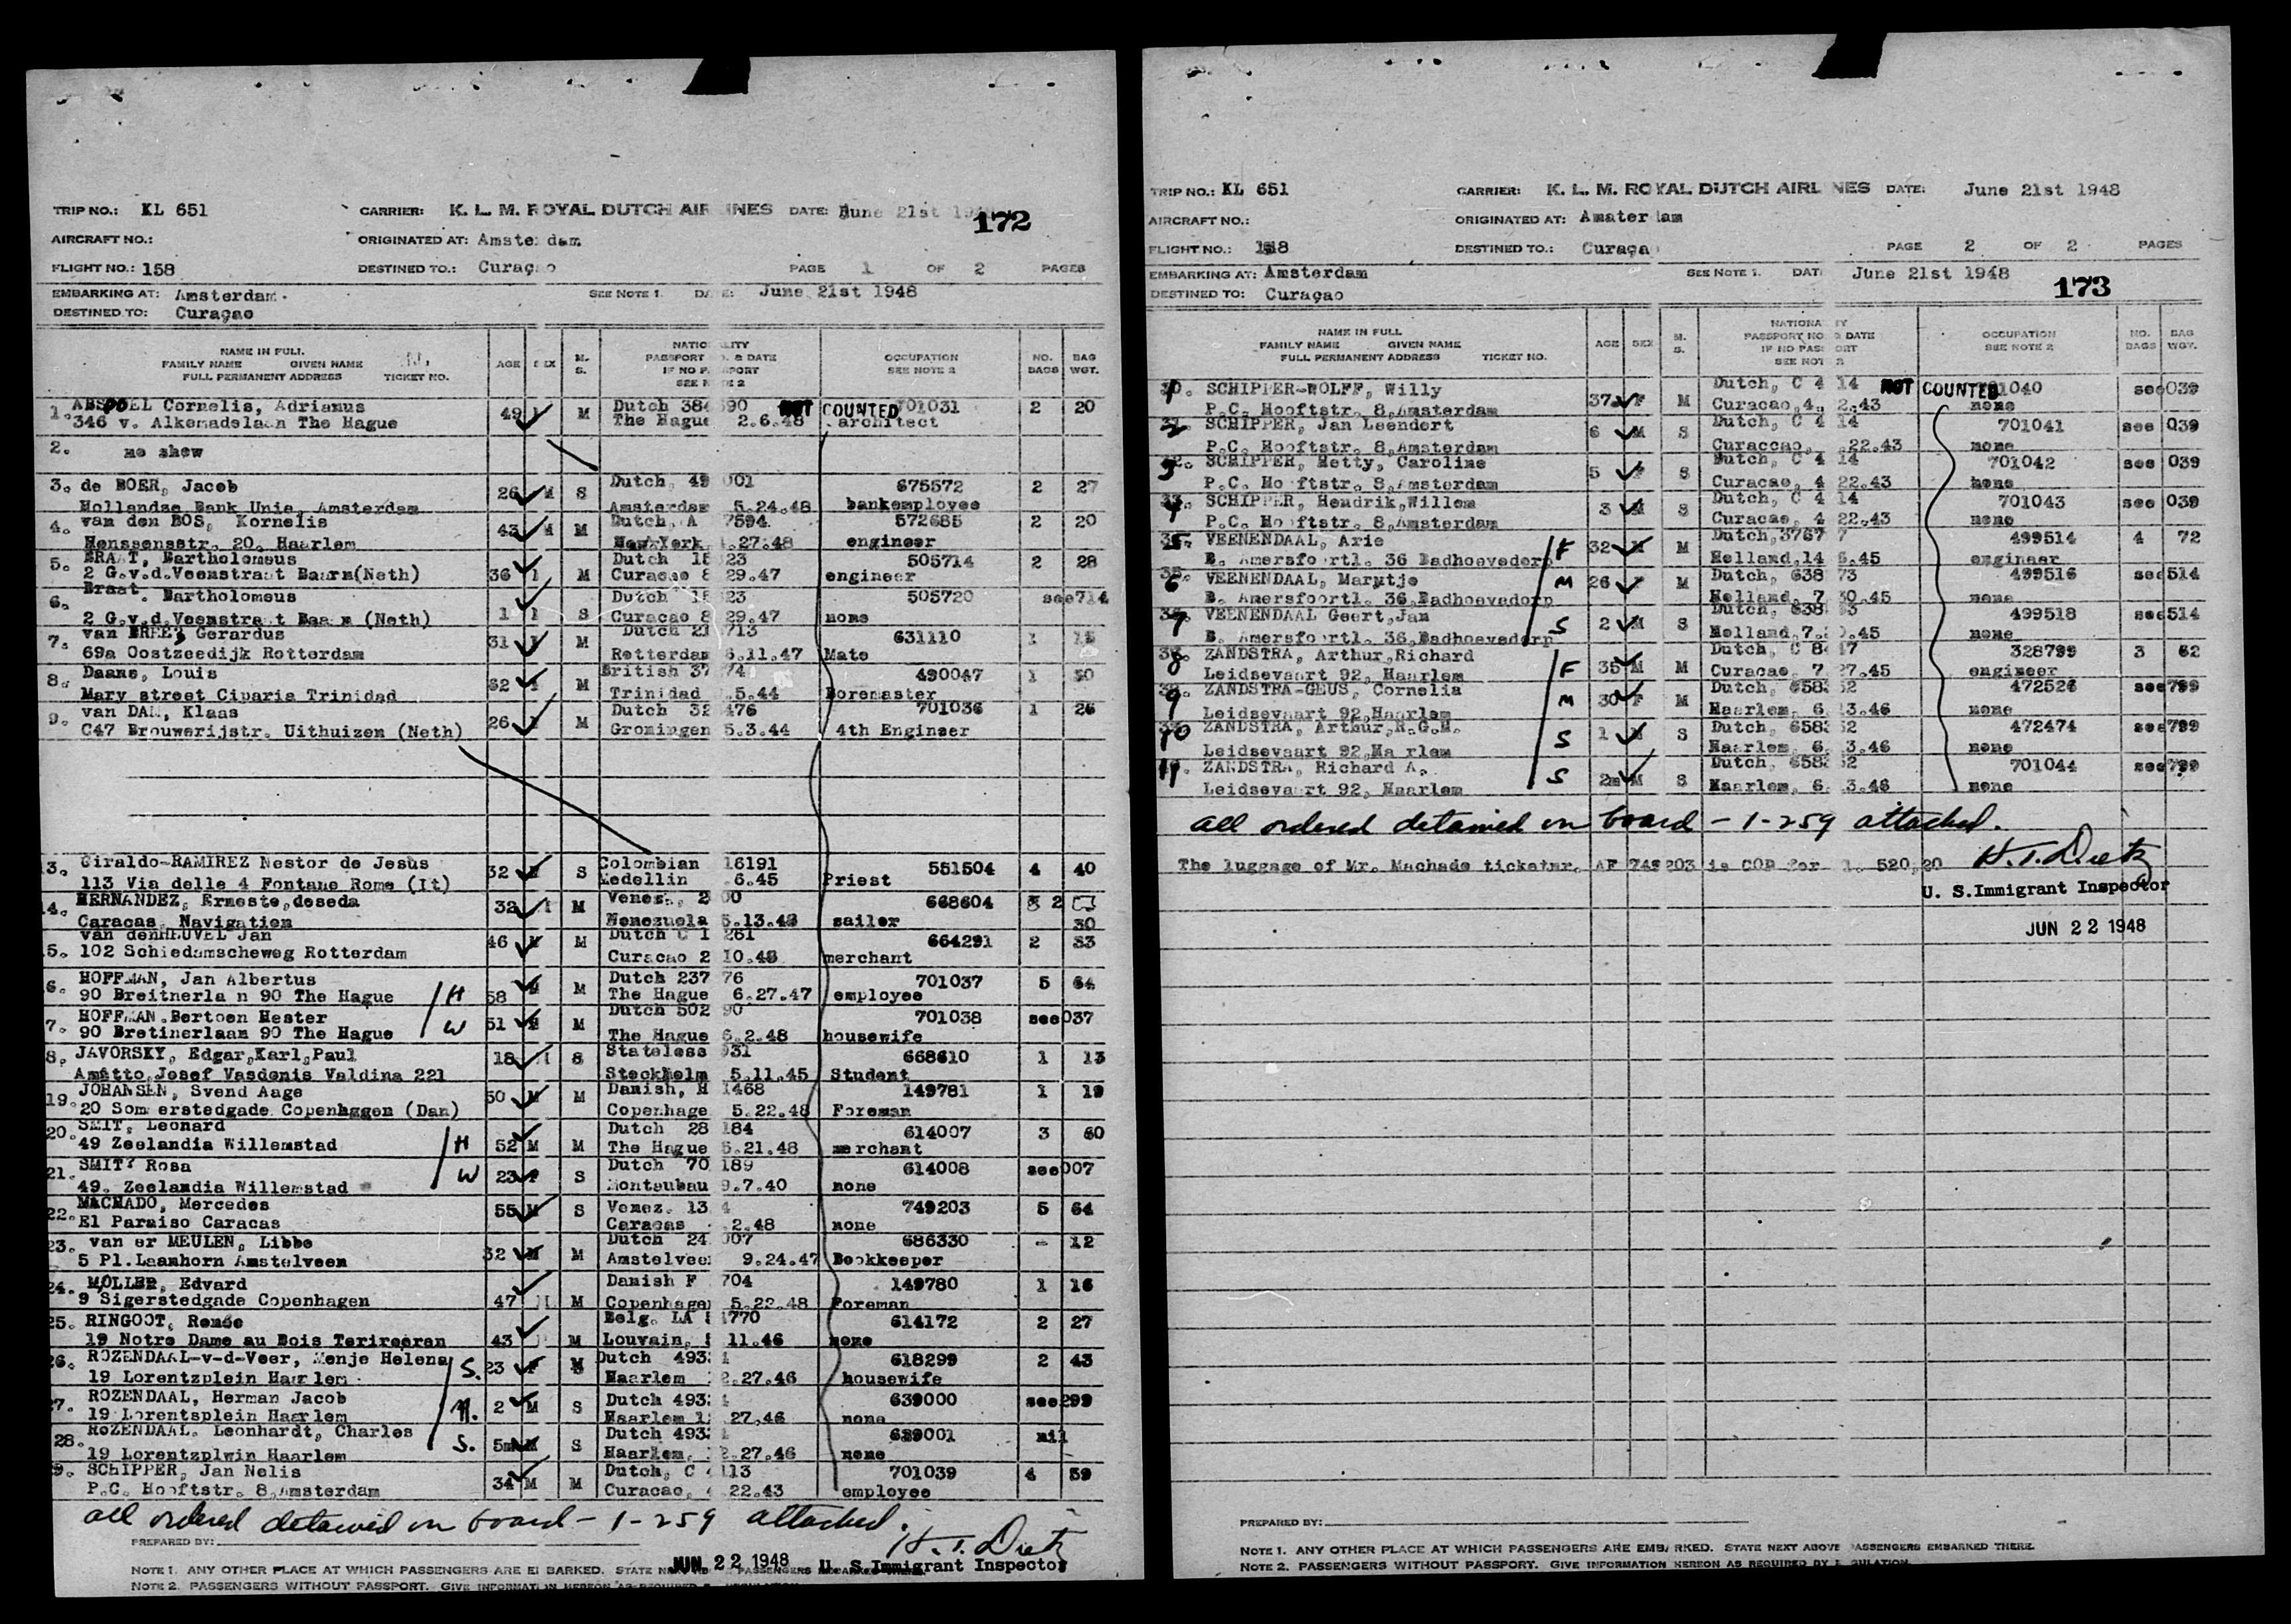 TRIP NO.: KL 651 CARRIER: K. L. M. ROYAL DUTCH AIRLINES DATE: June 21st 1948
172
AIRCRAFT NO.: ORIGINATED AT: Amsterdam
FLIGHT NO.: 158 DESTINED TO.: Curaçao PAGE 1 OF 2 PAGES
EMBARKING AT: Amsterdam. SEE NOTE 1. DATE: June 21st 1948
DESTINED TO: Curaçao
NAME IN FULL
FAMILY NAME GIVEN NAME
FULL PERMANENT ADDRESS TICKET NO. AGE SEX M. S. NATIONALITY PASSPORT NO. & DATE IF NO PASSPORT SEE NOTE 2 OCCUPATION SEE NOTE 2 NO. BAGS BAG WGT.
1. ABSPOEL Cornelis, Adrianus 49 M Dutch 384 590 NOT COUNTED 701031 2 20
346 v. Alkemadelaan The Hague The Hague 2.6.48 architect
2. no show
3. de BOER, Jacob 26 M S Dutch, 49 001 675572 2 27
Hollandse Bank Unie, Amsterdam Amsterdam 5.24.48 bankemployee
4. van den BOS, Kornelis 43 M M Dutch, A 7594 572685 2 20
Henssensstr. 20. Haarlem NewYork .27.48 engineer
5. BRAAT, Bartholomeus 36 M Dutch 18 523 505714 2 28
2 G.v.d.Veenstraat Baarn(Neth) Curacao 8 29.47 engineer
6. Braat. Bartholomeus 1 S Dutch 18 523 505720 see714
2 G.v.d.Veenstraat Baarn (Neth) Curacao 8 29.47 none
7. van BREE, Gerardus 31 M Dutch 21 713 631110 1 15
69a Oostzeedijk Rotterdam Rotterdam 6.11.47 Mate
8. Daans, Louis 62 M British 37 74 490047 1 30
Mary street Ciparia Trinidad Trinidad .5.44 Boremaster
9. van DAM, Klaas 26 M Dutch 32 476 701036 1 26
C47 Brouwerijstr. Uithuizen (Neth) Groningen 5.3.44 4th Engineer
3. Giraldo-RAMIREZ Nestor de Jesus 32 S Colombian 16191 551504 4 40
113 Via delle 4 Fontane Rome (It) Medellin .6.45 Priest
4. HERNANDEZ, Ernesto,deseda 32 M Venez., 2 00 668604 2
Caracas, Navigation Venezuela 5.13.48 sailor 30
van denHEUVEL Jan 46 M M Dutch C 1 261 664291 2 33
5. 102 Schiedamscheweg Rotterdam Curacao 2 10.48 merchant
6. HOFFMAN, Jan Albertus H 58 M Dutch 237 76 701037 5 64
90 Breitnerla n 90 The Hague The Hague 6.27.47 employee
7. HOFFMAN.Bertoen Hester W 51 M Dutch 502 90 701038 see037
90 Bretinerlaan 90 The Hague The Hague 6.2.48 housewife
8. JAVORSKY, Edgar,Karl,Paul 18 S Stateless 931 668610 1 13
Amatto,Josef Vasdenis Valdina 221 Stockholm 5.11.45 Student
19. JOHANSEN, Svend Aage 50 M M Danish, H 1468 149781 1 19
20 Som erstedgade Copenhagen (Dan) Copenhage 5.22.48 Foreman
20. SMIT, Leonard H 52 M M Dutch 28 184 614007 3 60
49 Zeelandia Willemstad The Hague 5.21.48 merchant
21. SMIT, Rosa W 23 F S Dutch 70 189 614008 see007
49. Zeelandia Willemstad Montaubau 9.7.40 none
22. MACHADO, Mercedes 55 S Venez. 13 4 749203 5 64
El Paraiso Caracas Caracas .2.48 none
23. van er MEULEN, Libbe 32 M M Dutch 24 007 686330 - 12
5 Pl.Laanhorn Amstelveen Amstelvee 9.24.47 Bookkeeper
24. MØLLER, Edvard 47 M Danish F 704 149780 1 16
9 Sigerstedgade Copenhagen Copenhagen 5.22.48 Foreman
25. RINGOOT, Renée 43 M Belg. LA 1770 614172 2 27
19 Notre Dame au Bois Terireeren Louvain, 11.46 none
26. ROZENDAAL-v-d-Veer, Menje Helena S. 23 F Dutch 493 4 618299 2 43
19 Lorentzplein Haarlem .27.46 Haarlem housewife
27. ROZENDAAL, Herman Jacob 2 M S Dutch 493 4 639000 see299
19 Lorentsplein Haarlem Haarlem 1 27.46 none
28. ROZENDAAL. Leonhardt, Charles S. 5m M S Dutch 493 639001 nil
19 Lorentzplwin Haarlem Haarlem, 2.27.46 none
9. SCHIPPER, Jan Nelis 34 M M Dutch, C 4113 701039 4 59
P.C. Hooftstr. 8,Amsterdam Curacao, 22.43 employee
all ordered detained on board - 1-259 attached.
H.T. Dietz
PREPARED BY:
JUN 22 1948 U. S. Immigrant Inspector
NOTE 1. ANY OTHER PLACE AT WHICH PASSENGERS ARE EMBARKED. STATE
NOTE 2. PASSENGERS WITHOUT PASSPORT. GIVE INFORMATION HEREON AS REQUIRED
TRIP NO.: KL 651 CARRIER: K. L. M. ROYAL DUTCH AIRLINES DATE: June 21st 1948
AIRCRAFT NO.: ORIGINATED AT: Amsterdam
FLIGHT NO.: 158 DESTINED TO.: Curaçao PAGE 2 OF 2 PAGES
EMBARKING AT: Amsterdam SEE NOTE 1. DATE June 21st 1948
DESTINED TO: Curaçao 173
NAME IN FULL
FAMILY NAME GIVEN NAME
FULL PERMANENT ADDRESS TICKET NO. AGE SEX M. S. NATIONALITY PASSPORT NO & DATE IF NO PASSPORT SEE NOTE 2 OCCUPATION SEE NOTE 2 NO. BAGS BAG WGT.
1. SCHIPPER-WOLFF, Willy 37 F M Dutch, C 4 14 NOT COUNTED 701040 see039
P.C. Hooftstr. 8,Amsterdam Curacao,4. 2.43 none
2. SCHIPPER, Jan Leendert 6 M S Dutch, C 4 14 701041 see 039
P.C. Hooftstr. 8,Amsterdam Curaccao, .22.43 none
3. SCHIPPER, Hetty, Caroline 5 F S Dutch, C 4 14 701042 see 039
P.C. Ho ftstr. 8,Amsterdam Curacao, 4 22.43 none
4. SCHIPPER, Hendrik,Willem 3 M S Dutch, C 4 14 701043 see 039
P.C. Ho ftstr. 8,Amsterdam Curacao, 4 22.43 none
5. VEENENDAAL, Arie F 32 M M Dutch,3767 7 499514 4 72
B. Amersfoortl. 36 Badhoevedorp Holland,14 5.45 engineer
6. VEENENDAAL, Marntje M 26 F M Dutch, 638 73 499516 see514
B. Amersfoortl. 36,Badhoevedorp Holland, 7 30.45 none
7. VEENENDAAL Geert,Jan S 2 M S Dutch, 638 499518 see514
B. Amersfoortl. 36,Badhoevedorp Holland,7. .45 none
8. ZANDSTRA, Arthur,Richard F 35 M M Dutch, C 8 17 328799 3 62
Leidsevaart 92, Haarlem Curacao, 7 27.45 engineer
9. ZANDSTRA-GEUS, Cornelia M 30 F M Dutch, 658 52 472526 see799
Leidsevaart 92,Haarlem Haarlem, 6 3.46 none
10 ZANDSTRA, Arthur,R.G.M. S 1 M S Dutch, 658 52 472474 see799
Leidsevaart 92,Ha rlem Haarlem, 6. 3.46 none
11. ZANDSTRA, Richard A. S 2m M S Dutch, 658 52 701044 see799
Leidsevaart 92, Haarlem Haarlem, 6. 3.46 none
all ordered detained on board - 1-259 attached.
The luggage of Mr. Machado ticketnr. AF 749203 is COD for 520,20
H.T. Dietz
U. S. Immigrant Inspector
JUN 22 1948
PREPARED BY:
NOTE 1. ANY OTHER PLACE AT WHICH PASSENGERS ARE EMBARKED. STATE NEXT ABOVE PASSENGERS EMBARKED THERE.
NOTE 2. PASSENGERS WITHOUT PASSPORT. GIVE INFORMATION HEREON AS REQUIRED BY REGULATION